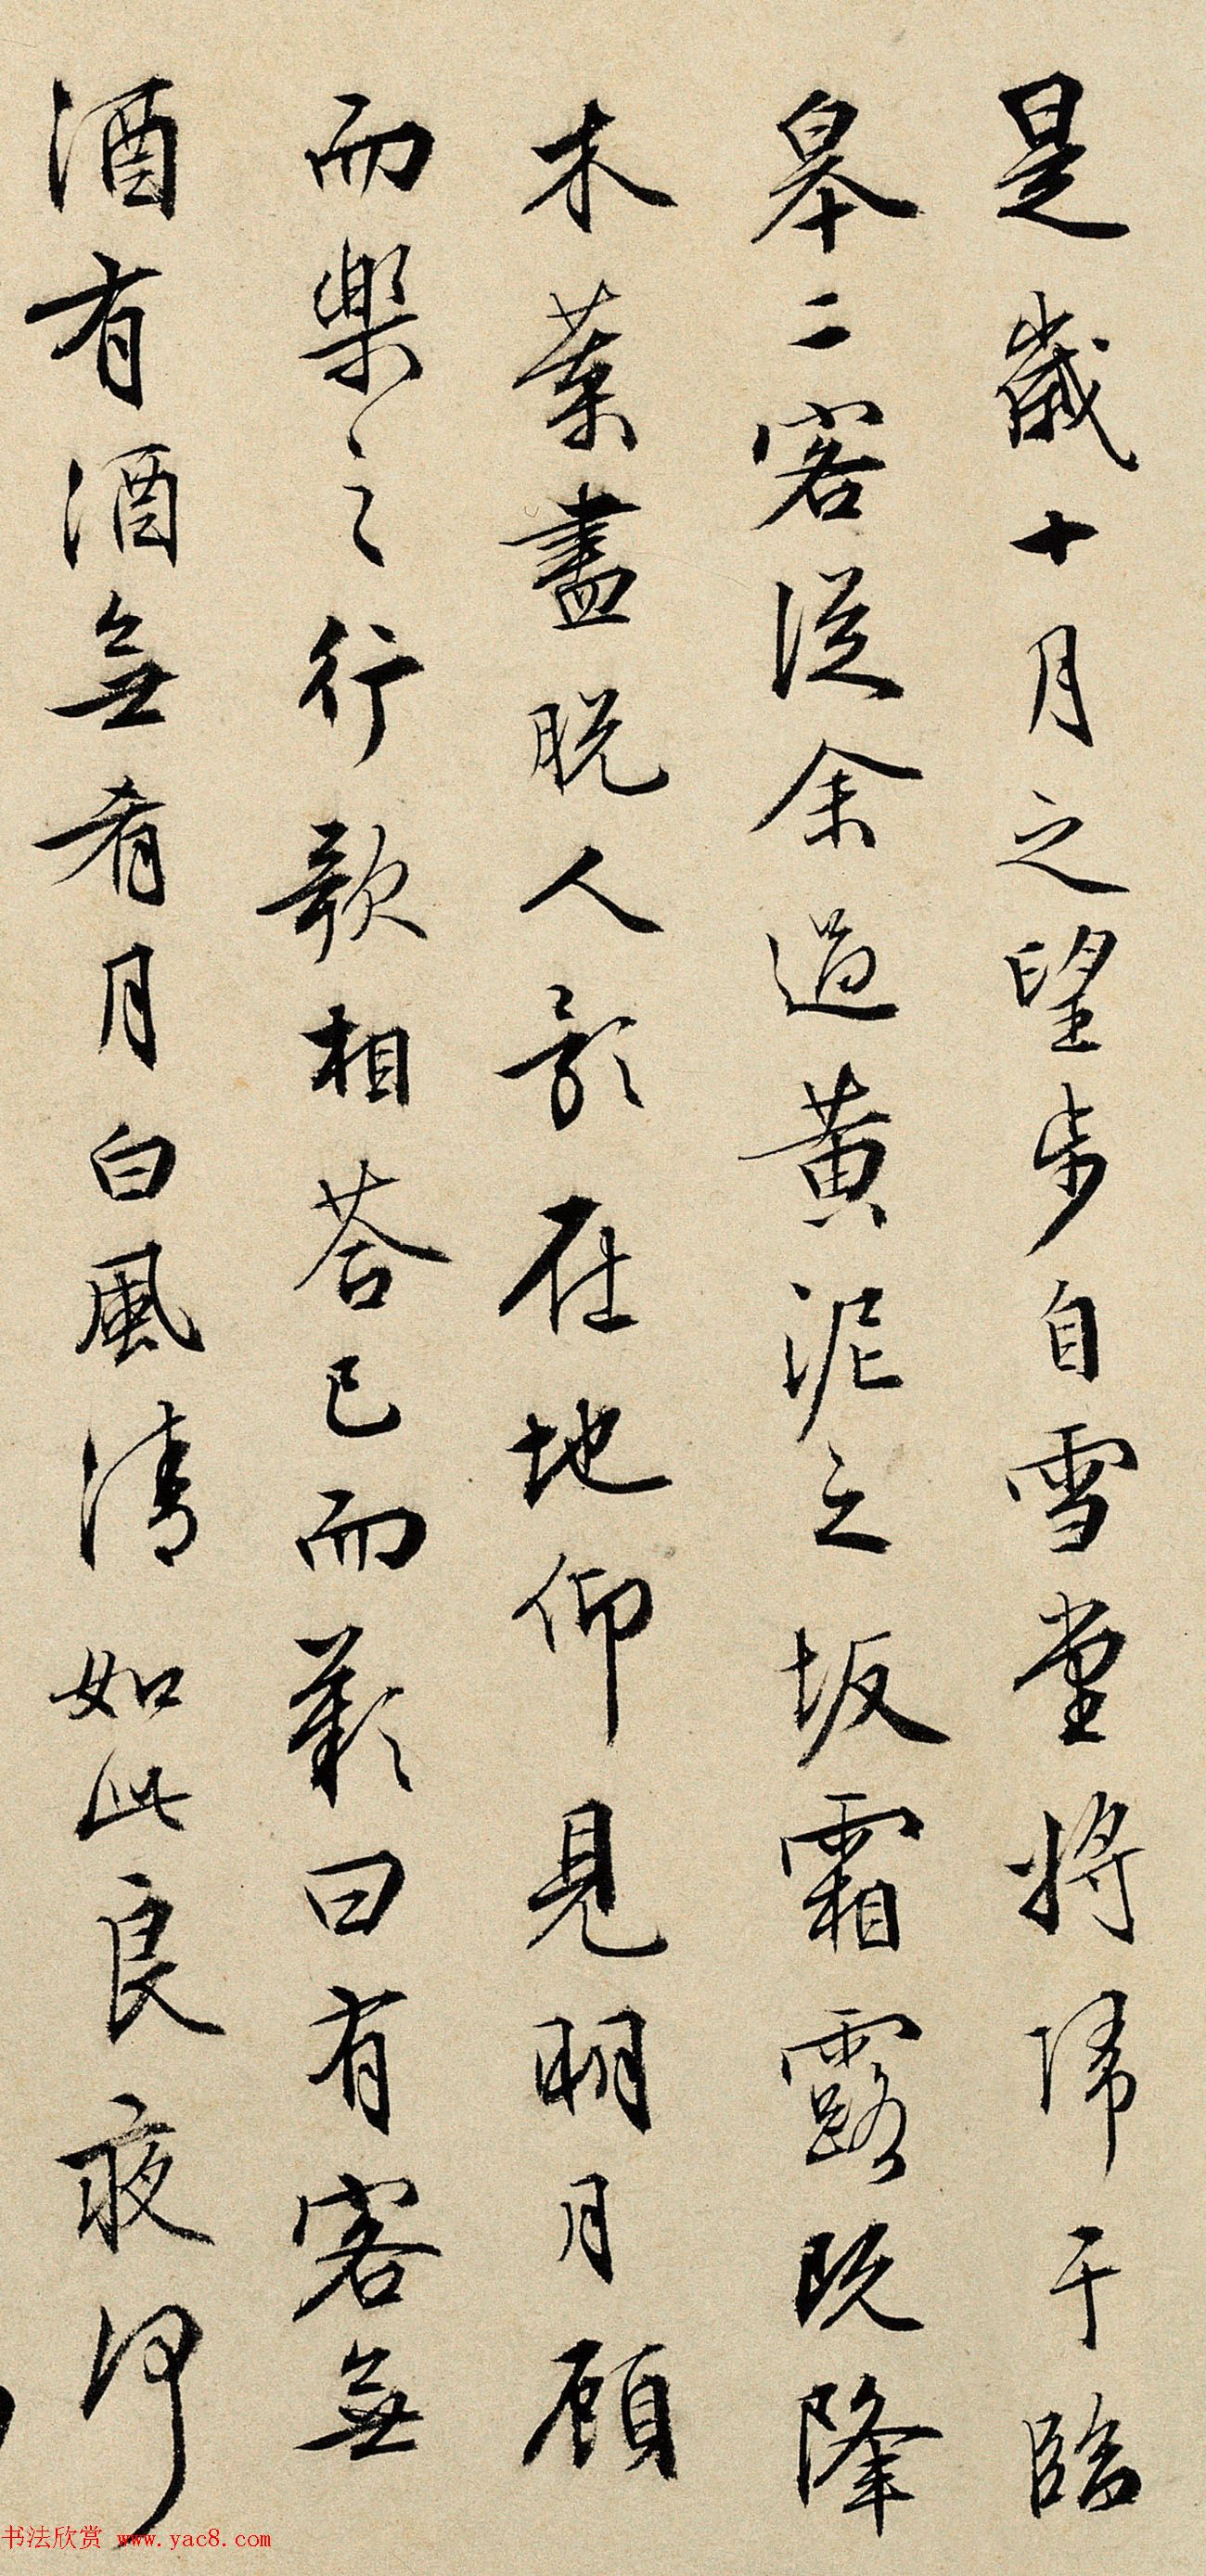 是歲十月之望步自雪堂將歸于臨
皋二客從余過黃泥之坂霜露既降
木葉盡脫人影在地仰見明月顧
而樂之行歌相荅已而歎曰有客無
酒有酒無肴月白風清如此良夜何
书法欣赏 www.yac8.com